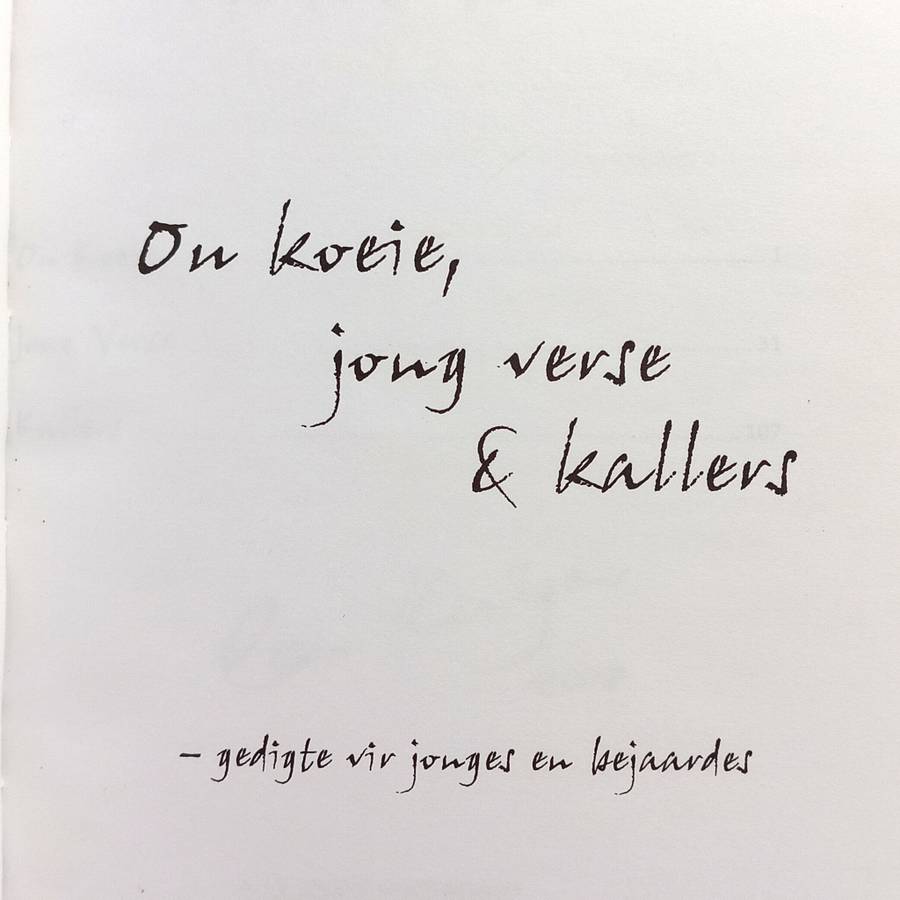 Ou koeie,
jong verse
& kallers
– gedigte vir jonges en bejaardes